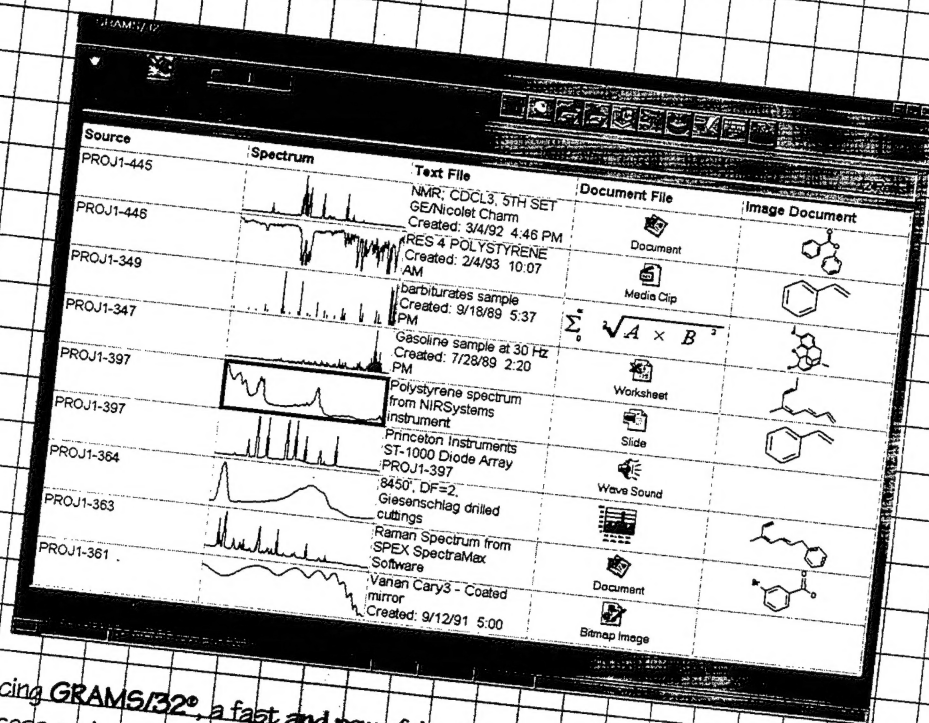 GRAMS/32
Source Spectrum Text File Document File Image Document
PROJ1-445
NMR; CDCL3, 5TH SET
GE/Nicolet Charm
Created: 3/4/92 4:46 PM
Document
PROJ1-446
RES 4 POLYSTYRENE
Created: 2/4/93 10:07
AM
Media Clip
PROJ1-349
barbiturates sample
Created: 9/18/89 5:37
PM
∑ⁿ₀ ²√A × B ²
PROJ1-347
Gasoline sample at 30 Hz
Created: 7/28/89 2:20
PM
Worksheet
PROJ1-397
Polystyrene spectrum
from NIRSystems
instrument
Slide
PROJ1-397
Princeton Instruments
ST-1000 Diode Array
PROJ1-397
Wave Sound
PROJ1-364
8450', DF=2,
Giesenschlag drilled
cuttings
PROJ1-363
Raman Spectrum from
SPEX SpectraMax
Software
Document
PROJ1-361
Varian Cary3 - Coated
mirror
Created: 9/12/91 5:00
Bitmap Image
cing GRAMS/32®, a fast and